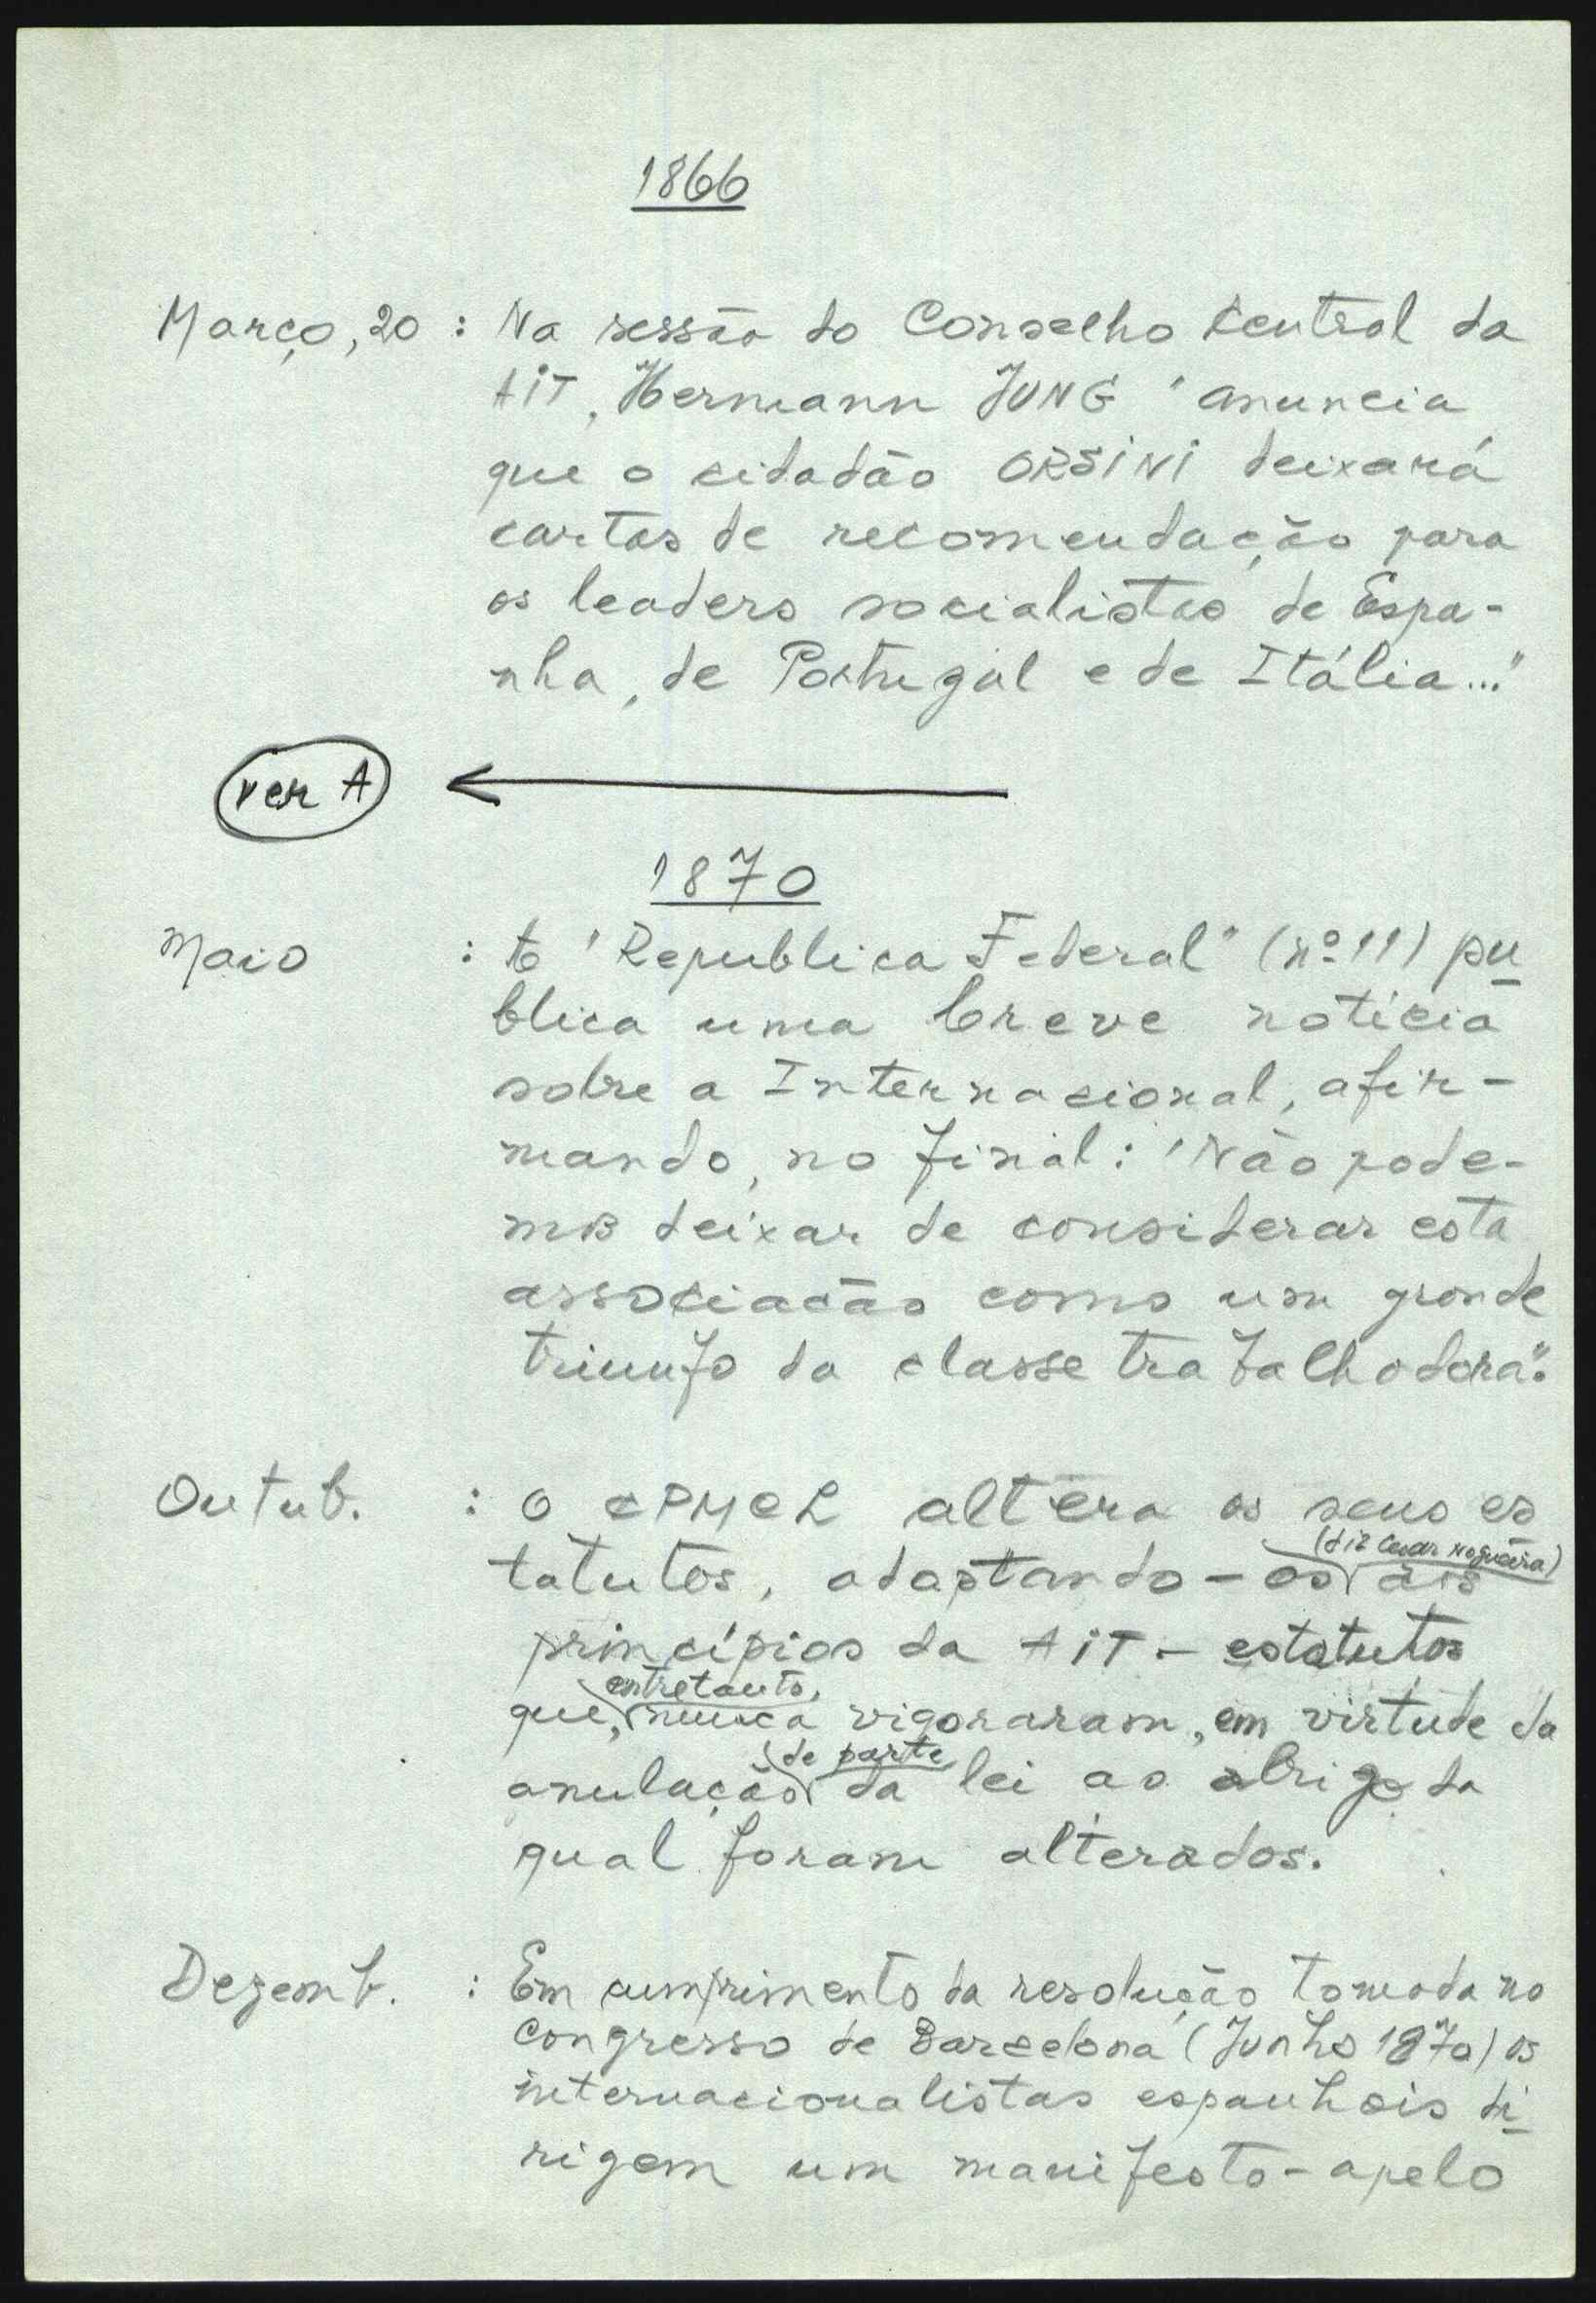 1866
Março, 20 : Na sessão do Conselho Central da
AIT, Hermann JUNG "anuncia
que o cidadão ORSINI deixará
cartas de recomendação para
os leaders socialistas de Espa-
nha, de Portugal e de Itália..."
ver A
1870
Maio : A "Republica Federal" (nº 11) pu
blica uma breve notícia
sobre a Internacional, afir-
mando, no final: "Não pode-
mos deixar de considerar esta
associação como um grande
triunfo da classe trabalhadora".
Outub. : O CPMCL altera os seus es
(diz Cesar Nogueira)
tatutos, adaptando-os aos
princípios da AIT - estatutos
entretanto,
que, nunca vigoraram, em virtude da
de parte
anulação da lei ao abrigo da
qual foram alterados.
Dezemb. : Em cumprimento da resolução tomada no
congresso de Barcelona (Junho 1870) os
internacionalistas espanhois di
rigem um manifesto-apelo